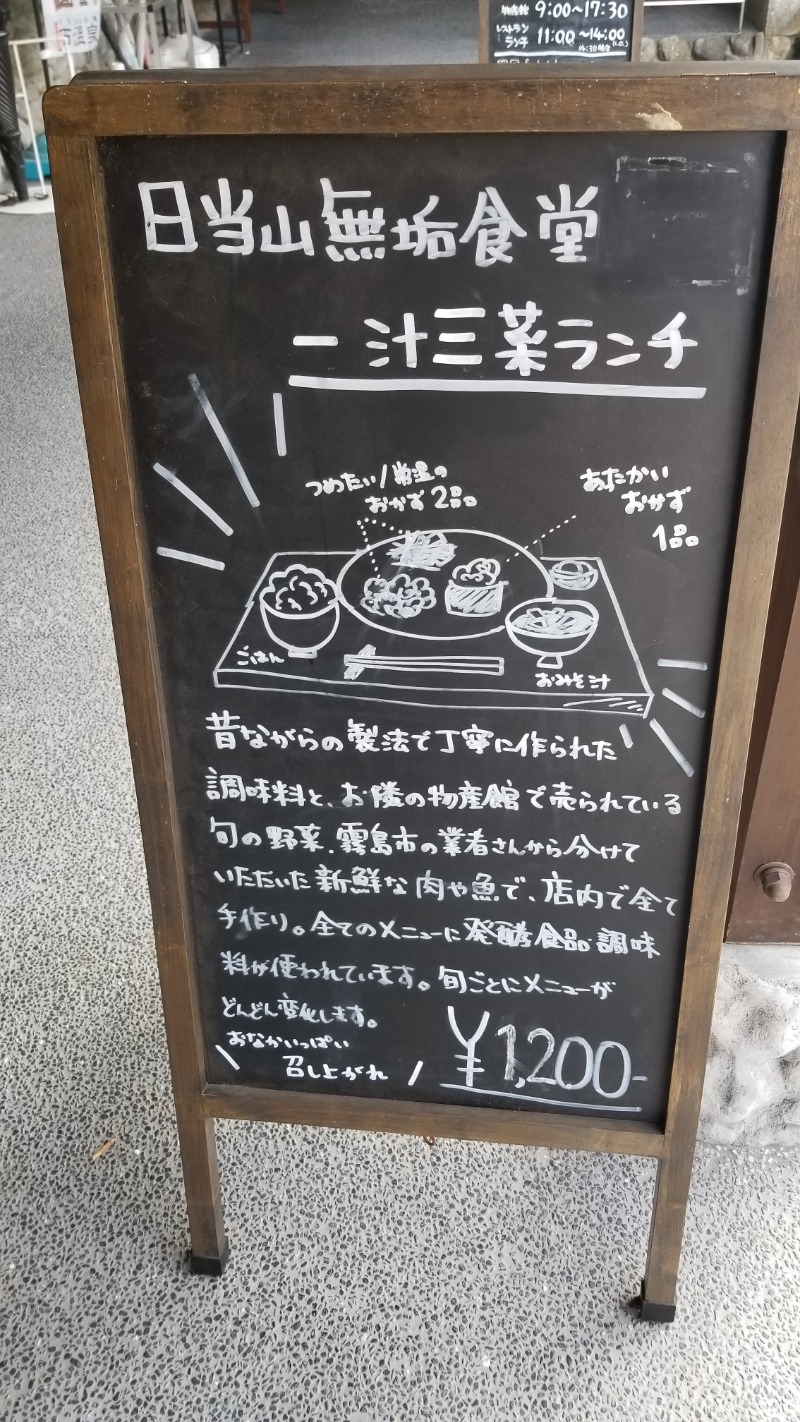 物産館 9:00〜17:30
レストラン
ランチ 11:00〜14:00
日当山無垢食堂
一汁三菜ランチ
つめたい/常温の
おかず2品
あたかい
おかず
1品
ごはん
おみそ汁
昔ながらの製法で丁寧に作られた
調味料と、お隣の物産館で売られている
旬の野菜、霧島市の業者さんから分けて
いただいた新鮮な肉や魚で、店内で全て
手作り。全てのメニューに発酵食品調味
料が使われています。旬ごとにメニューが
どんどん変化します。
おなかいっぱい
召し上がれ
¥1,200-